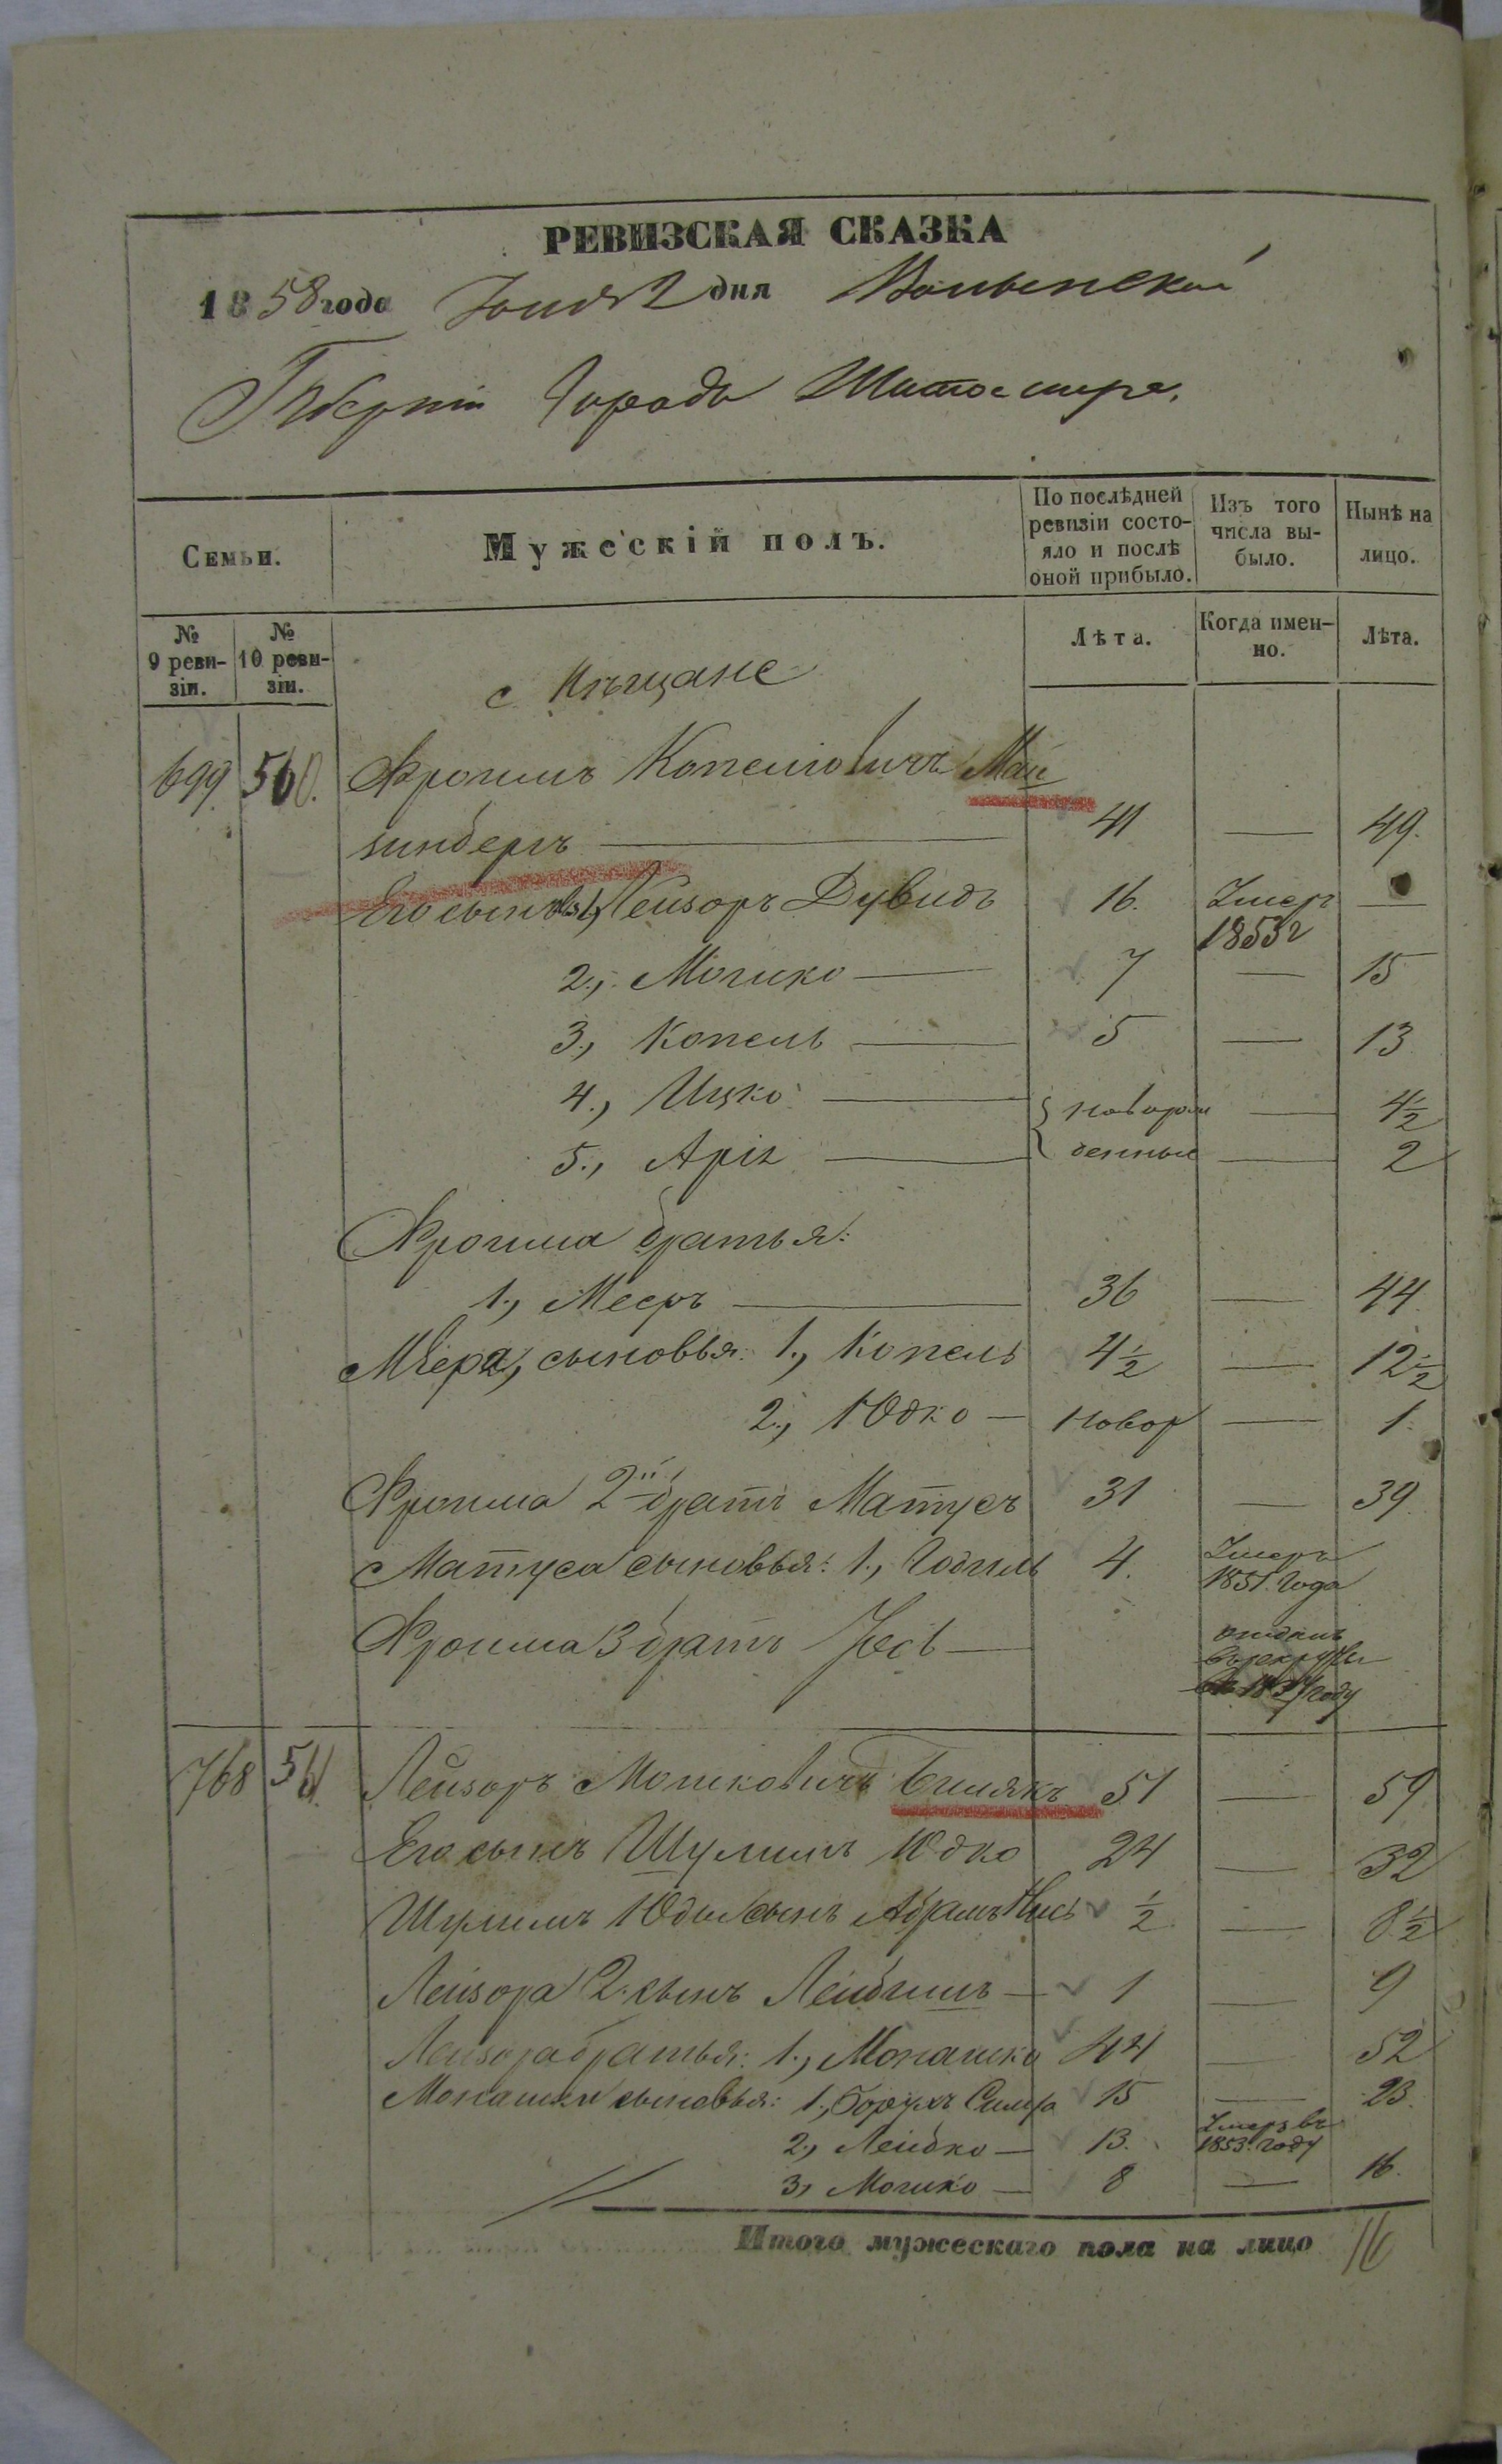 РЕВИЗСКАЯ СКАЗКА
1858 года Іюня 2 дня Волынской
Губерніи города Житомира.
Семьи.
Мужескій полъ.
По послѣдней ревизіи состо-
яло и послѣ
оной прибыло.
Изъ того
числа вы-
было.
Нынѣ на
лицо.
№
9 реви-
зіи.
№
10 реви-
зіи.
Лѣта.
Когда имен-
но.
Лѣта.
Мѣщане
699 560. Фроимъ Копелiовичъ Май
зинберъ 41 — 49.
Его сыновья 1, Лейзоръ Дувидъ 16. Умеръ 1853 г —
2., Мошко 7 — 15
3., Копель 5 — 13
4., Ицко новорож — 4½
5., Арiя денные — 2
Фроима братья:
1., Мееръ 36 — 44.
Меера, сыновья: 1., Копель 4½ — 12½
2., Юдко — новор — 1.
Фроима 2й братъ Матусъ 31 — 39.
Матуса сыновья: 1., Годель 4. Умеръ 1851. года
Фроима 3 братъ Іосъ — отданъ
в рекруты
году
768 561. Лейзоръ Мошковичъ 51 — 59
Его сынъ Шулимъ Юдко 24 — 32
Шулимъ Юдки сынъ Абрамъ ½ — 8½
Лейзора 2. сынъ Лейбишъ — 1 — 9
Лейзора братья: 1., Монашко 44 — 52
Монашки сыновья: 1., Борухъ Симха 15 — 23.
2., Лейбко — 13. Умеръ въ 1853. году
3, Мошко — 8 — 16.
Итого мужескаго пола на лицо 16